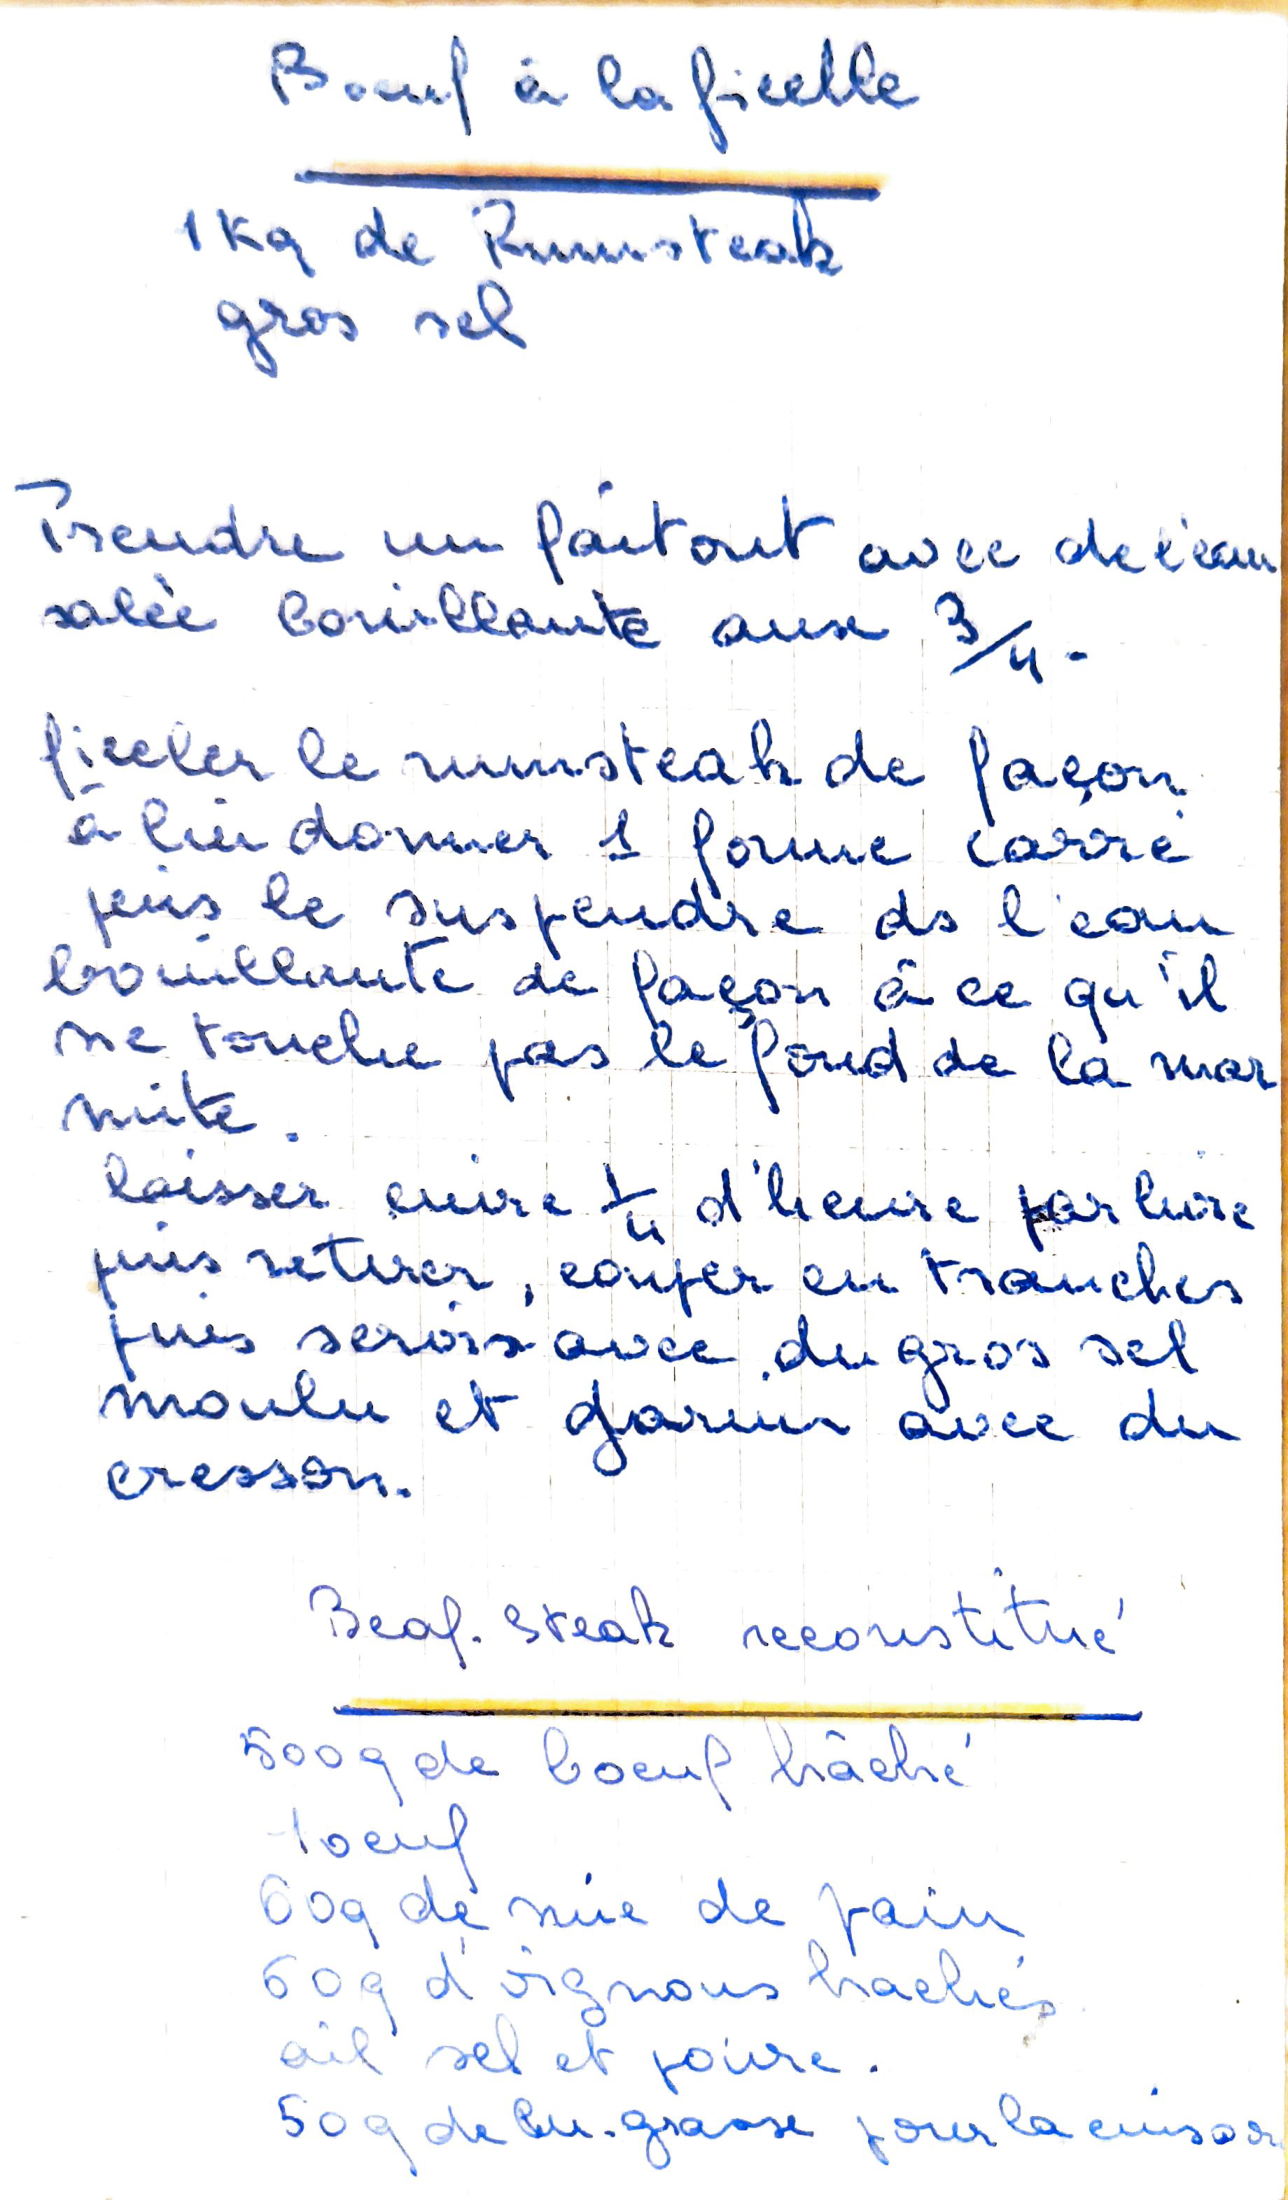 Boeuf à la ficelle
1 Kg de Rumsteak
gros sel
Prendre un faitout avec de l'eau
salée bouillante aux 3/4.
ficeler le rumsteak de façon
à lui donner 1 forme carré
puis le suspendre ds l'eau
bouillante de façon à ce qu'il
ne touche pas le fond de la mar
mite.
laisser cuire 1/4 d'heure par livre
puis retirer, couper en tranches
puis servir avec du gros sel
moulu et garnir avec du
cresson.
Beaf. Steak reconstitué
500g de boeuf hâché
1 oeuf
60g de mie de pain
60g d'oignons hachés
ail sel et poivre.
50g de grasse pour la cuisson